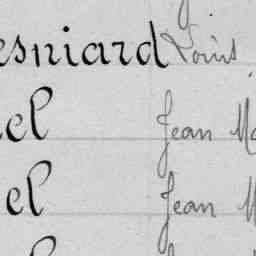 esniard Louis
el Jean Ma
el Jean M